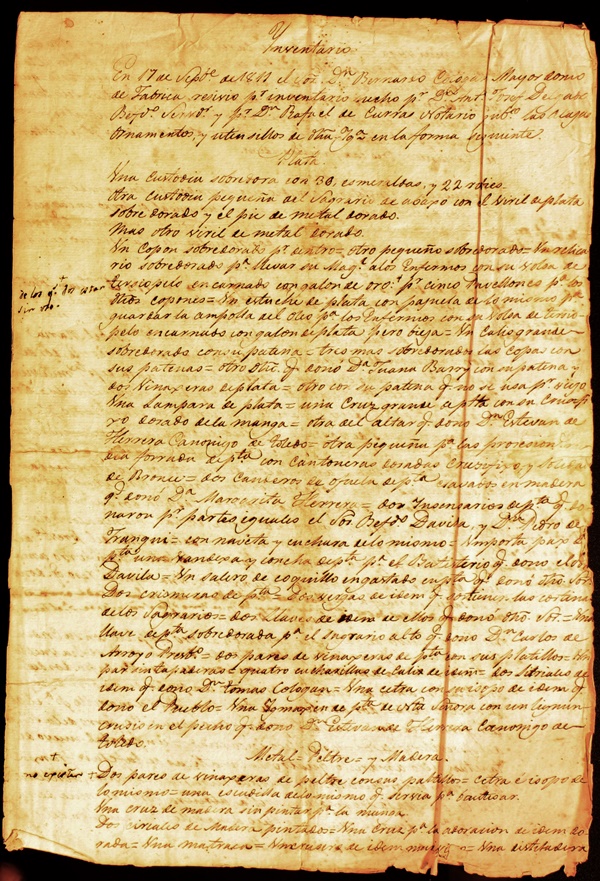 Y
Inventario
En 17 de Sepbe. de 1811 el Sor. Dn. Bernardo Mayordomo
de Fabrica resivio pr. inventario hecho pr. Dn.
Befdo. Servdr. y pr. Dn. Rafael de Curras Notario las Alajas
Ornamentos, y utensilios de dha. Yga. en la forma siguiente.
Plata.
Una custodia sobredora con 30, esmeraldas, y 22 rubies.
Otra custodia pequeña del Sagrario de abaxo con el Viril de plata
sobre dorado y el pie de metal dorado.
Mas otro viril de metal dorado.
Un Copon sobredorado pr. dentro = otro pequeño sobredorado = Un relica
rio sobredorado pa. llevar su Magd. a los Enfermos con su Volsa de
tersiopelo encarnado con galon de oro: pa. cinco Pavellones pa. los
dhos copones = Un estuche de plata con pajuela de lo mismo pa.
guardar la ampolla del Oleo pa. los Enfermos con su Volsa de tersio
pelo encarnado con galon de plata pero vieja = Un Calis grande
sobredorado con su patena = tres mas sobredoradas las Copas con
sus patenas = otro dho. q. dono Da. Juana Barry con su patena y
dos Vinaxeras de plata = otro con su patena q. no se usa pr. viejo
Una Lampara de plata = una Cruz grande de pta. con su Crucifi
xo dorado de la manga = otra del altar q. dono Dn. Estevan de
Herrera Canonigo de Toledo = otra pequeña pa. las procesiones
dia forrada de pta. con Cantoneras doradas Crucifixo, y
de Bronse = dos Canderos de ojuela de pta. clavados en madera
q. donó Da. Margarita Herrera = dos Insensarios de pta. q. do
naron pr. partes iguales el Sor. Befdo. Davila, y Dn. Pedro de
Franqui = con naveta y cuchara de lo mismo = Vn porta pax de
pta. una vandexa y concha de pta. pa. el Bautisterio q. dono el Sor.
Davila = Un salero de coquillo engastado en pta. q. donó dho. Sor.
Dos crismeras de pta. = Dos vergas de idem q. sostienen las cortinas
de los Sagrarios = dos llaves de idem de ellos q. donó dho. Sor. = Una
llave de pta. sobredorada pa. el Sagrario alto q. dono Dn. Carlos de
Arroyo Presbo. = dos pares de vinaxeras de pta. con sus platillos = Un
par sin tapaderas = quatro cucharillas de Calis de idem = dos Siriales de
idem q. dono Dn. Tomas Cologan = Una cetra con su isopo de idem q.
dono el Pueblo = Una Ymaxen de pta. de Nta Señora con un
cruzio en el pecho q. dono Dn. Estevan de Herrera Canonigo de
Toledo.
Metal = Peltre = y Madera.
Dos pares de vinaxeras de peltre con sus platillos = cetra e isopo de
lo mismo = una escudilla de lo mismo q. servia pa. bautisar.
Una cruz de madera sin pintar pa. la manga.
Dos siriales de Madera pintados = Una Cruz pa. la adorasion de idem do
rada = Una matraca = = Una
de los q. dos estan
sin uso.
no existen +